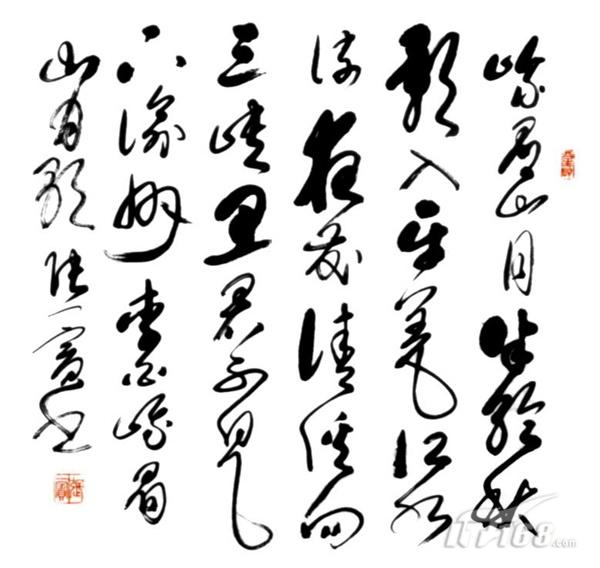 峨眉山月半轮秋
影入平羌江水
流夜发清溪向
三峡思君不见
下渝州李白峨眉
山月歌书
IT168.com